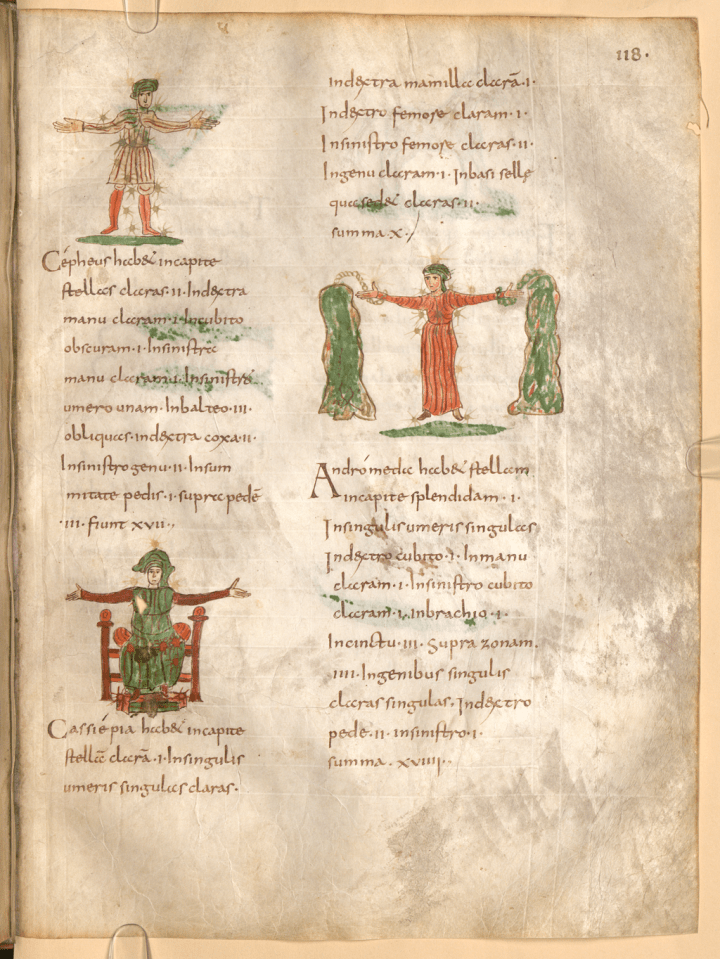 118.
Cépheus habet incapite
stellas claras·ii·Indextra
manu claram·i·Incubito
obscuram·i·Insinistra
manu claram·i·Insinistro
umero unam·Inbalteo·iii·
obliquas·indextra coxa·ii·
Insinistro genu·ii·Insum
mitate pedis·i·supra pedē
·iii·fiunt xvii··
Cassiépia habet incapite
stellā clarā·i·Insingulis
umeris singulas claras·
indextra mamilla clarā·i·
Indextro femore claram·i·
Insinistro femore claras·ii·
Ingenu claram·i·Inbasi selle
qua sedet claras·ii·
summa·x·
Andrómeda habet stellam
incapite splendidam·i·
Insingulis umeris singulas
Indextro cubito·i·Inmanu
claram·i·Insinistro cubito
claram·i·inbrachio·i·
Incinctu·iii·Supra zonam·
iiii·Ingenibus singulis
claras singulas·Indextro
pede·ii·insinistro·i·
summa·xviiii··